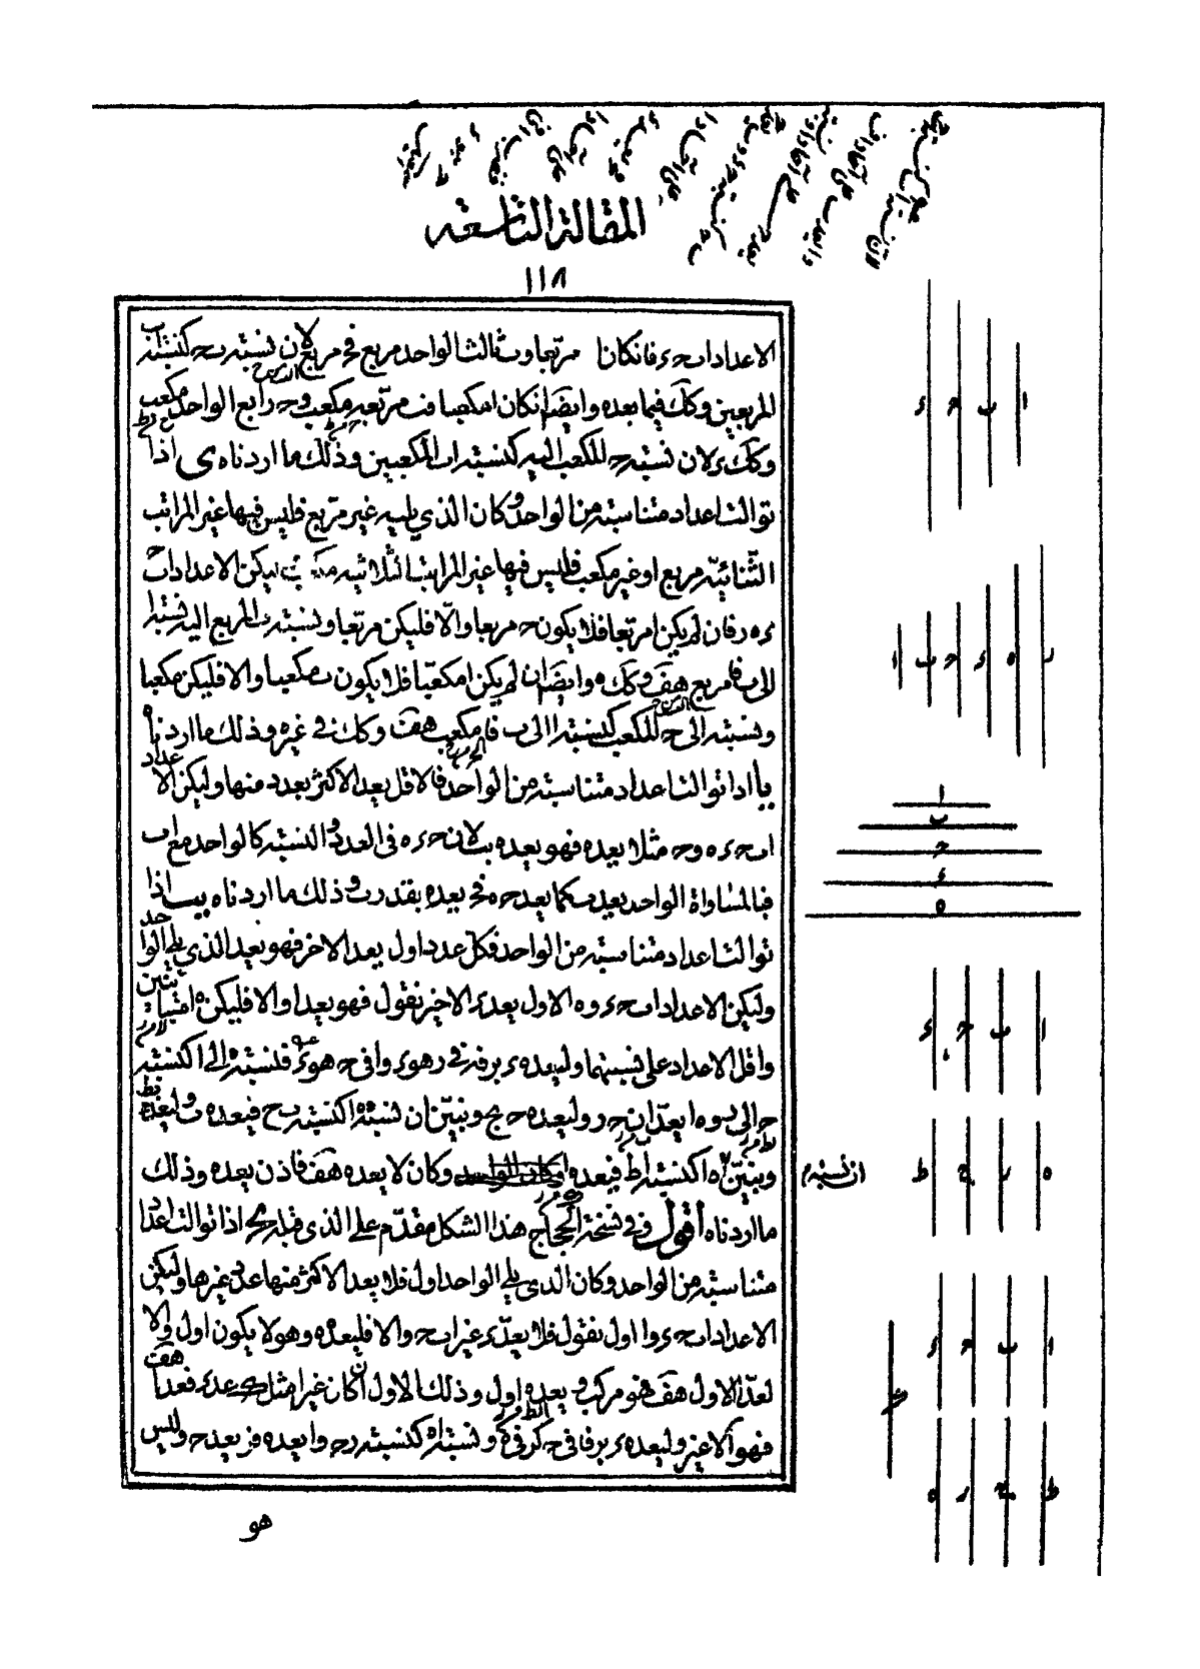 المقالة التاسعة
١١٨
الاعداد اب حـ ء فان كان ا مربعا و ب ثالث الواحد مربع فحـ مربع لان نسبة ب حـ كنسبة اب
المربعين وكك فيما بعده وايضا ان كان ا مكعبا فب مربعه مكعب و حـ رابع الواحد مكعب
وكك ء لان نسبة حـ المكعب اليه كنسبة اب المكعبين وذلك ما اردناه ى اذا
توالت اعداد متناسبة من الواحد وكان الذي يليه غير مربع فليس فيها غير المراتب
الثنائية مربع او غير مكعب فليس فيها غير المراتب الثلاثية مكعب ليكن الاعداد اب حـ
ء ه ر فان لم يكن ا مربعا فلا يكون حـ مربعا والا فليكن مربعا ونسبة ب المربع اليه نسبة ا
الى ب فا مربع هف وكك ه وايضا ان لم يكن ا مكعبا فلا يكون حـ مكعبا والا فليكن مكعبا
ونسبته الى حـ المكعب كنسبة ا الى ب فا مكعب هف وكك في غيره وذلك ما اردناه
يا اذا توالت اعداد متناسبة من الواحد فالاقل يعد الاكثر بعدد منها وليكن الاعداد
اب حـ ء ه و حـ مثلا يعد ه فهو يعده بب لان حـ ء ه في العدد والنسبة كالواحد مع اب
فبالمساواة الواحد يعد ب كما يعد حـ ه فحـ يعد ه بقدر ب وذلك ما اردناه يب اذا
توالت اعداد متناسبة من الواحد فكل عدد اول يعد الاخر فهو يعد الذي يلي الواحد
وليكن الاعداد اب حـ ء و ه الاول يعد ء الاخير نقول فهو يعد ا والا فليكن ه ا متباينين
واقل الاعداد على نسبتهما وليعد ه ء بر فه في ر هو ء وا في حـ هو ء فنسبة ه الى ا كنسبة
حـ الى ر و ه ا يعدان حـ ر وليعد ه حـ بح ونبين ان نسبة ه ا كنسبة ب ح فيعد ه ب وليعده بط
ونبين ه ا كنسبة ا ط فيعد ه ا وكان لا يعده هف فاذن يعده وذلك
ما اردناه اقول وفي نسخة الحجاج هذا الشكل مقدم على الذي قبله يج اذا توالت اعداد
متناسبة من الواحد وكان الذي يلي الواحد اول فلا يعد الاكثر منها عدد غيرها وليكن
الاعداد اب حـ ء و ا اول نقول فلا يعد ء غير اب حـ والا فليعده ه وهو لا يكون اول والا
لعد ا الاول هف فهو مركب و يعده اول وذلك الاول ان كان غير ا مثل ك عد ء فعد ا هف
فهو ا لا غير وليعد ه ء بر فا في حـ كر في ه ونسبة ا ه كنسبة ر حـ وا يعد ه فر يعد حـ وليس
هو
ا ب حـ ء
ر ه ء حـ ب ا
ا
ب
حـ
ء
ه
ا ب حـ ء
ه ر ح ط
ان نسبة
ا ب حـ ء
ك
ط ح ر ه